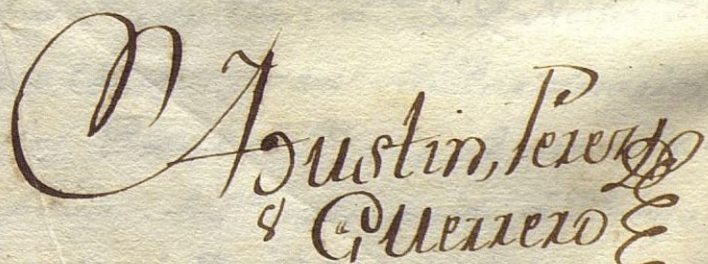 Agustin, Perez
Guerrero